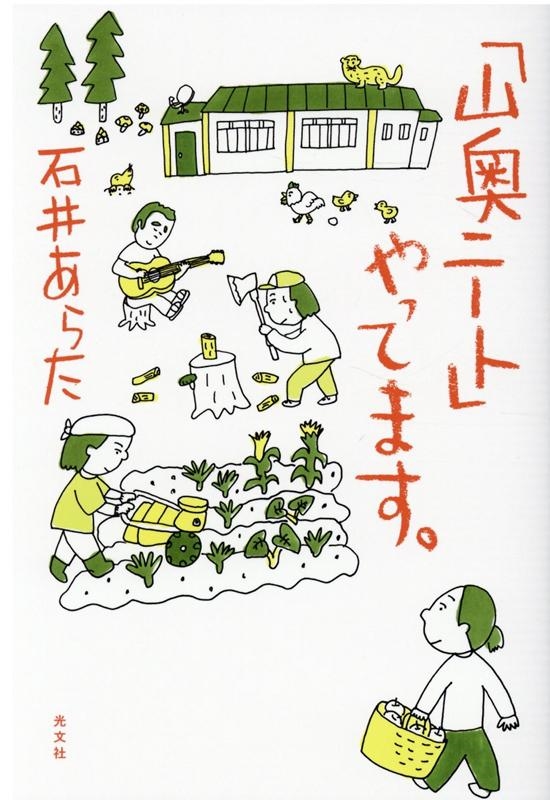 「山奥ニート」
やってます。
石井あらた
光文社